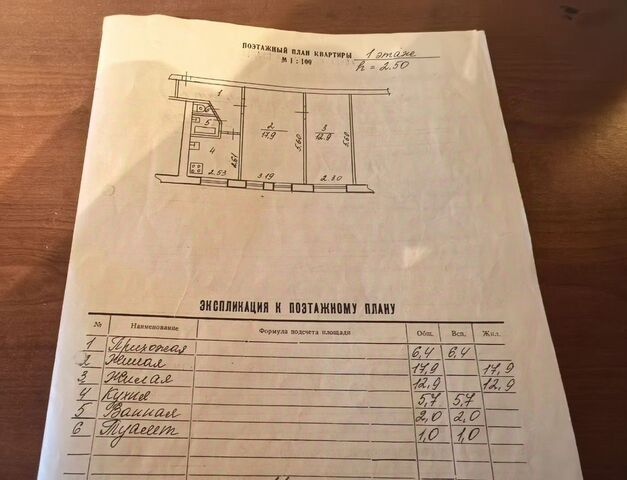 ПОЭТАЖНЫЙ ПЛАН КВАРТИРЫ 1 этаже
М 1 : 100 h = 2.50
1
6
5
4
2
17,9
3
12.9
2.61
5.60
5.60
2.53
3.19
2.30
ЭКСПЛИКАЦИЯ К ПОЭТАЖНОМУ ПЛАНУ
№ Наименование Формула подсчета площади Общ. Всп. Жил.
1 Прихожая 6,4 6,4
2 Жилая 17,9 17,9
3 Жилая 12,9 12,9
4 Кухня 5,7 5,7
5 Ванная 2,0 2,0
6 Туалет 1,0 1,0